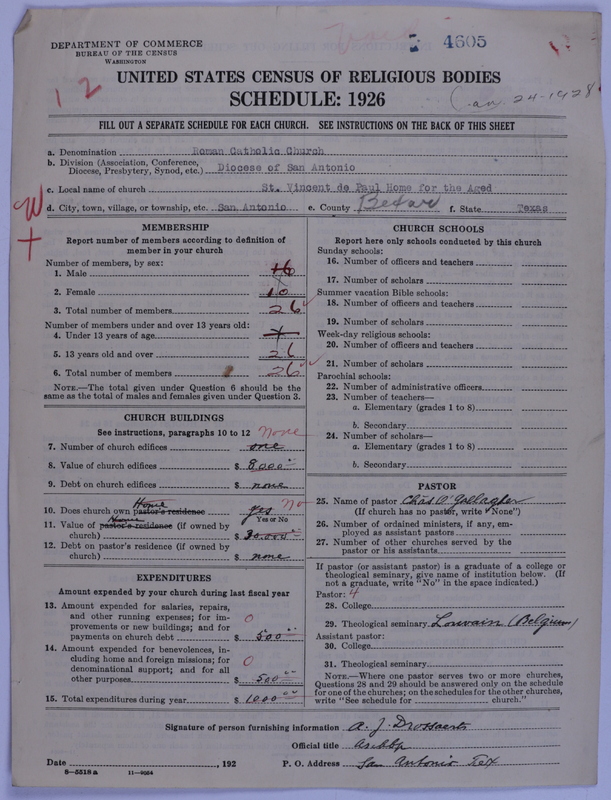 DEPARTMENT OF COMMERCE
BUREAU OF THE CENSUS
WASHINGTON
4605
1 2
UNITED STATES CENSUS OF RELIGIOUS BODIES
SCHEDULE: 1926
Jan. 24-1928
FILL OUT A SEPARATE SCHEDULE FOR EACH CHURCH. SEE INSTRUCTIONS ON THE BACK OF THIS SHEET
a. Denomination Roman Catholic Church
b. Division (Association, Conference, Diocese, Presbytery, Synod, etc.) Diocese of San Antonio
c. Local name of church St. Vincent de Paul Home for the Aged
d. City, town, village, or township, etc. San Antonio e. County Bexar f. State Texas
W
+
MEMBERSHIP
Report number of members according to definition of
member in your church
Number of members, by sex:
1. Male 16
2. Female 10
3. Total number of members 26
Number of members under and over 13 years old:
4. Under 13 years of age
5. 13 years old and over 26
6. Total number of members 26
NOTE.—The total given under Question 6 should be the
same as the total of males and females given under Question 3.
CHURCH BUILDINGS
See instructions, paragraphs 10 to 12 None
7. Number of church edifices one
8. Value of church edifices $ 8000.00
9. Debt on church edifices $ none
Home
10. Does church own pastor's residence yes No
Yes or No
Home
11. Value of pastor's residence (if owned by
church) $ 30.000.00
12. Debt on pastor's residence (if owned by
church) $ none
EXPENDITURES
Amount expended by your church during last fiscal year
13. Amount expended for salaries, repairs,
and other running expenses; for im-
provements or new buildings; and for
payments on church debt 0 $ 500.00
14. Amount expended for benevolences, in-
cluding home and foreign missions; for
denominational support; and for all
other purposes 0 $ 500.00
15. Total expenditures during year $ 1000.00
CHURCH SCHOOLS
Report here only schools conducted by this church
Sunday schools:
16. Number of officers and teachers
17. Number of scholars
Summer vacation Bible schools:
18. Number of officers and teachers
19. Number of scholars
Week-day religious schools:
20. Number of officers and teachers
21. Number of scholars
Parochial schools:
22. Number of administrative officers
23. Number of teachers—
a. Elementary (grades 1 to 8)
b. Secondary
24. Number of scholars—
a. Elementary (grades 1 to 8)
b. Secondary
PASTOR
25. Name of pastor Chas O'Gallagher
(If church has no pastor, write "None")
26. Number of ordained ministers, if any, em-
ployed as assistant pastors
27. Number of other churches served by the
pastor or his assistants
If pastor (or assistant pastor) is a graduate of a college or
theological seminary, give name of institution below. (If
not a graduate, write "No" in the space indicated.)
Pastor: 4
28. College
29. Theological seminary Louvain (Belgium)
Assistant pastor:
30. College
31. Theological seminary
NOTE.—Where one pastor serves two or more churches,
Questions 28 and 29 should be answered only on the schedule
for one of the churches; on the schedules for the other churches,
write "See schedule for church."
Signature of person furnishing information A. J. Drossaerts
Official title archbp
Date , 192 P. O. Address San Antonio Tex
8—5518 a 11—9024